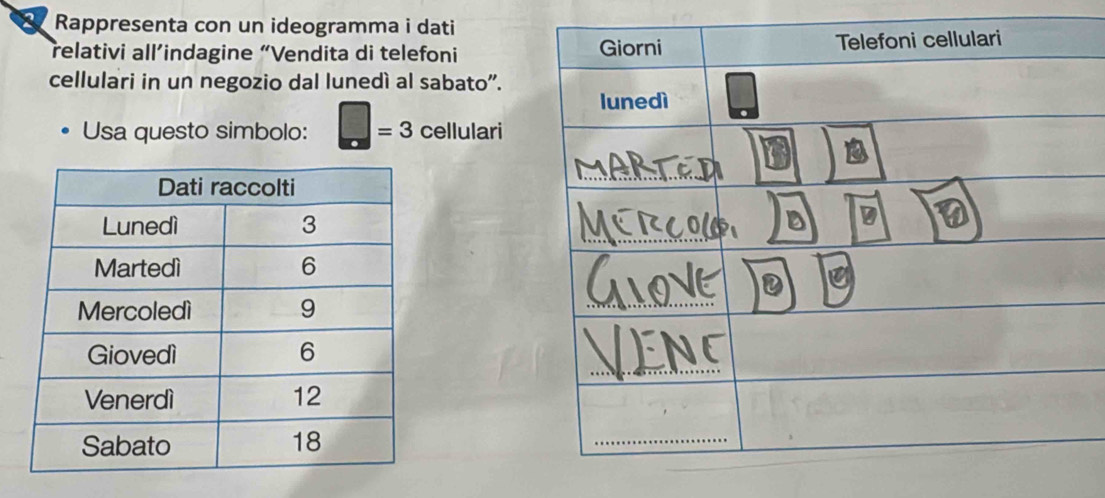 2 Rappresenta con un ideogramma i dati
relativi all'indagine "Vendita di telefoni
cellulari in un negozio dal lunedì al sabato".
• Usa questo simbolo: = 3 cellulari
Dati raccolti
Lunedì 3
Martedì 6
Mercoledì 9
Giovedì 6
Venerdì 12
Sabato 18
Giorni Telefoni cellulari
lunedì
MARTEDI
MERCOLEDI
GIOVE
VENE